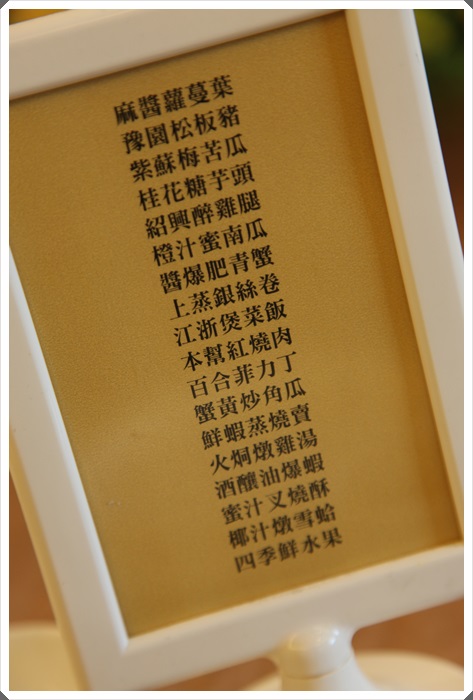 麻醬蘿蔓葉
豫園松板豬
紫蘇梅苦瓜
桂花糖芋頭
紹興醉雞腿
橙汁蜜南瓜
醬爆肥青蟹
上蒸銀絲卷
江浙煲菜飯
本幫紅燒肉
百合菲力丁
蟹黃炒角瓜
鮮蝦蒸燒賣
火焗燉雞湯
酒釀油爆蝦
蜜汁叉燒酥
椰汁燉雪蛤
四季鮮水果